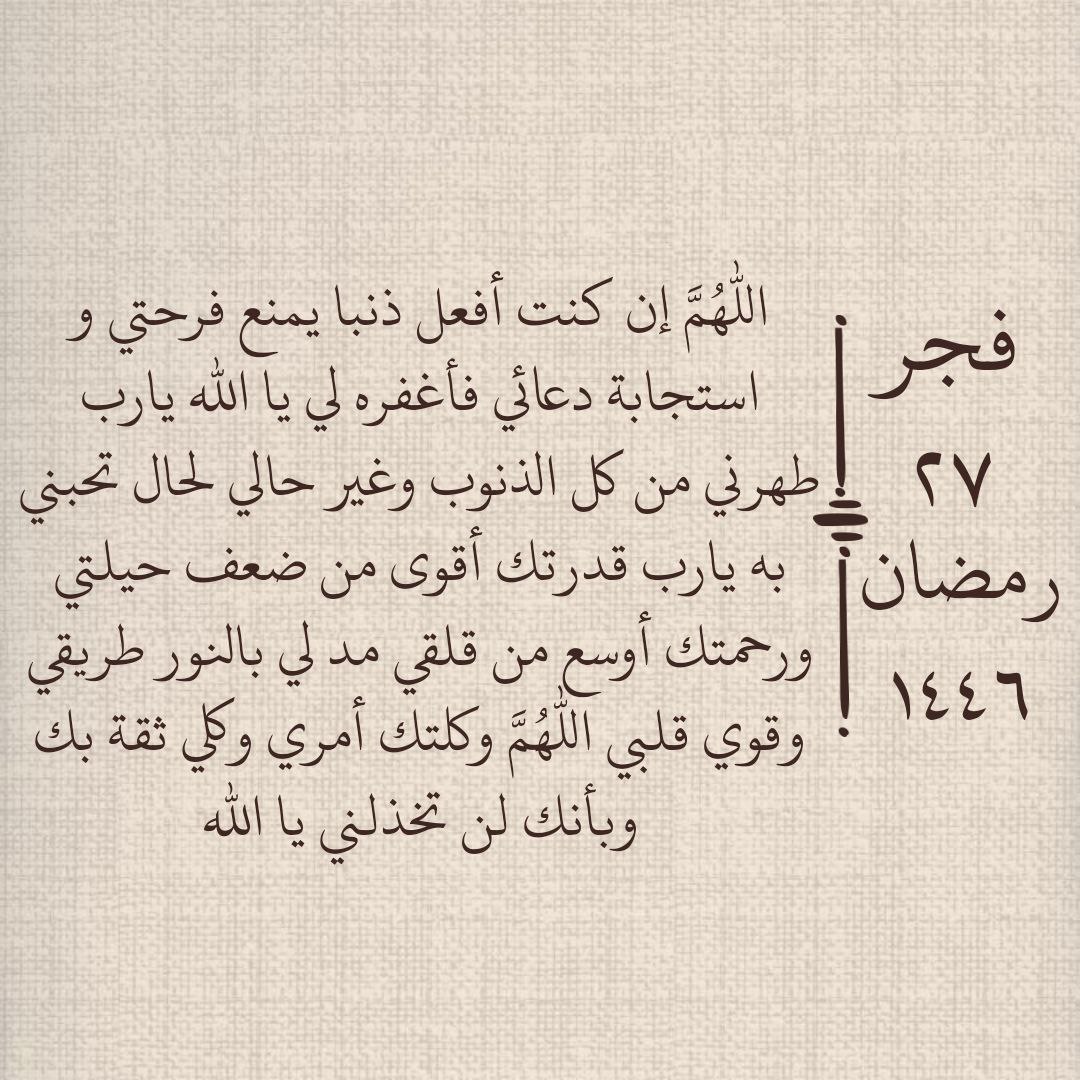 فجر
٢٧
رمضان
١٤٤٦
اللّٰهُمَّ إن كنت أفعل ذنبا يمنع فرحتي و
استجابة دعائي فأغفره لي يا الله يارب
طهرني من كل الذنوب وغير حالي لحال تحبني
به يارب قدرتك أقوى من ضعف حيلتي
ورحمتك أوسع من قلقي مد لي بالنور طريقي
وقوي قلبي اللّٰهُمَّ وكلتك أمري وكلي ثقة بك
وبأنك لن تخذلني يا الله